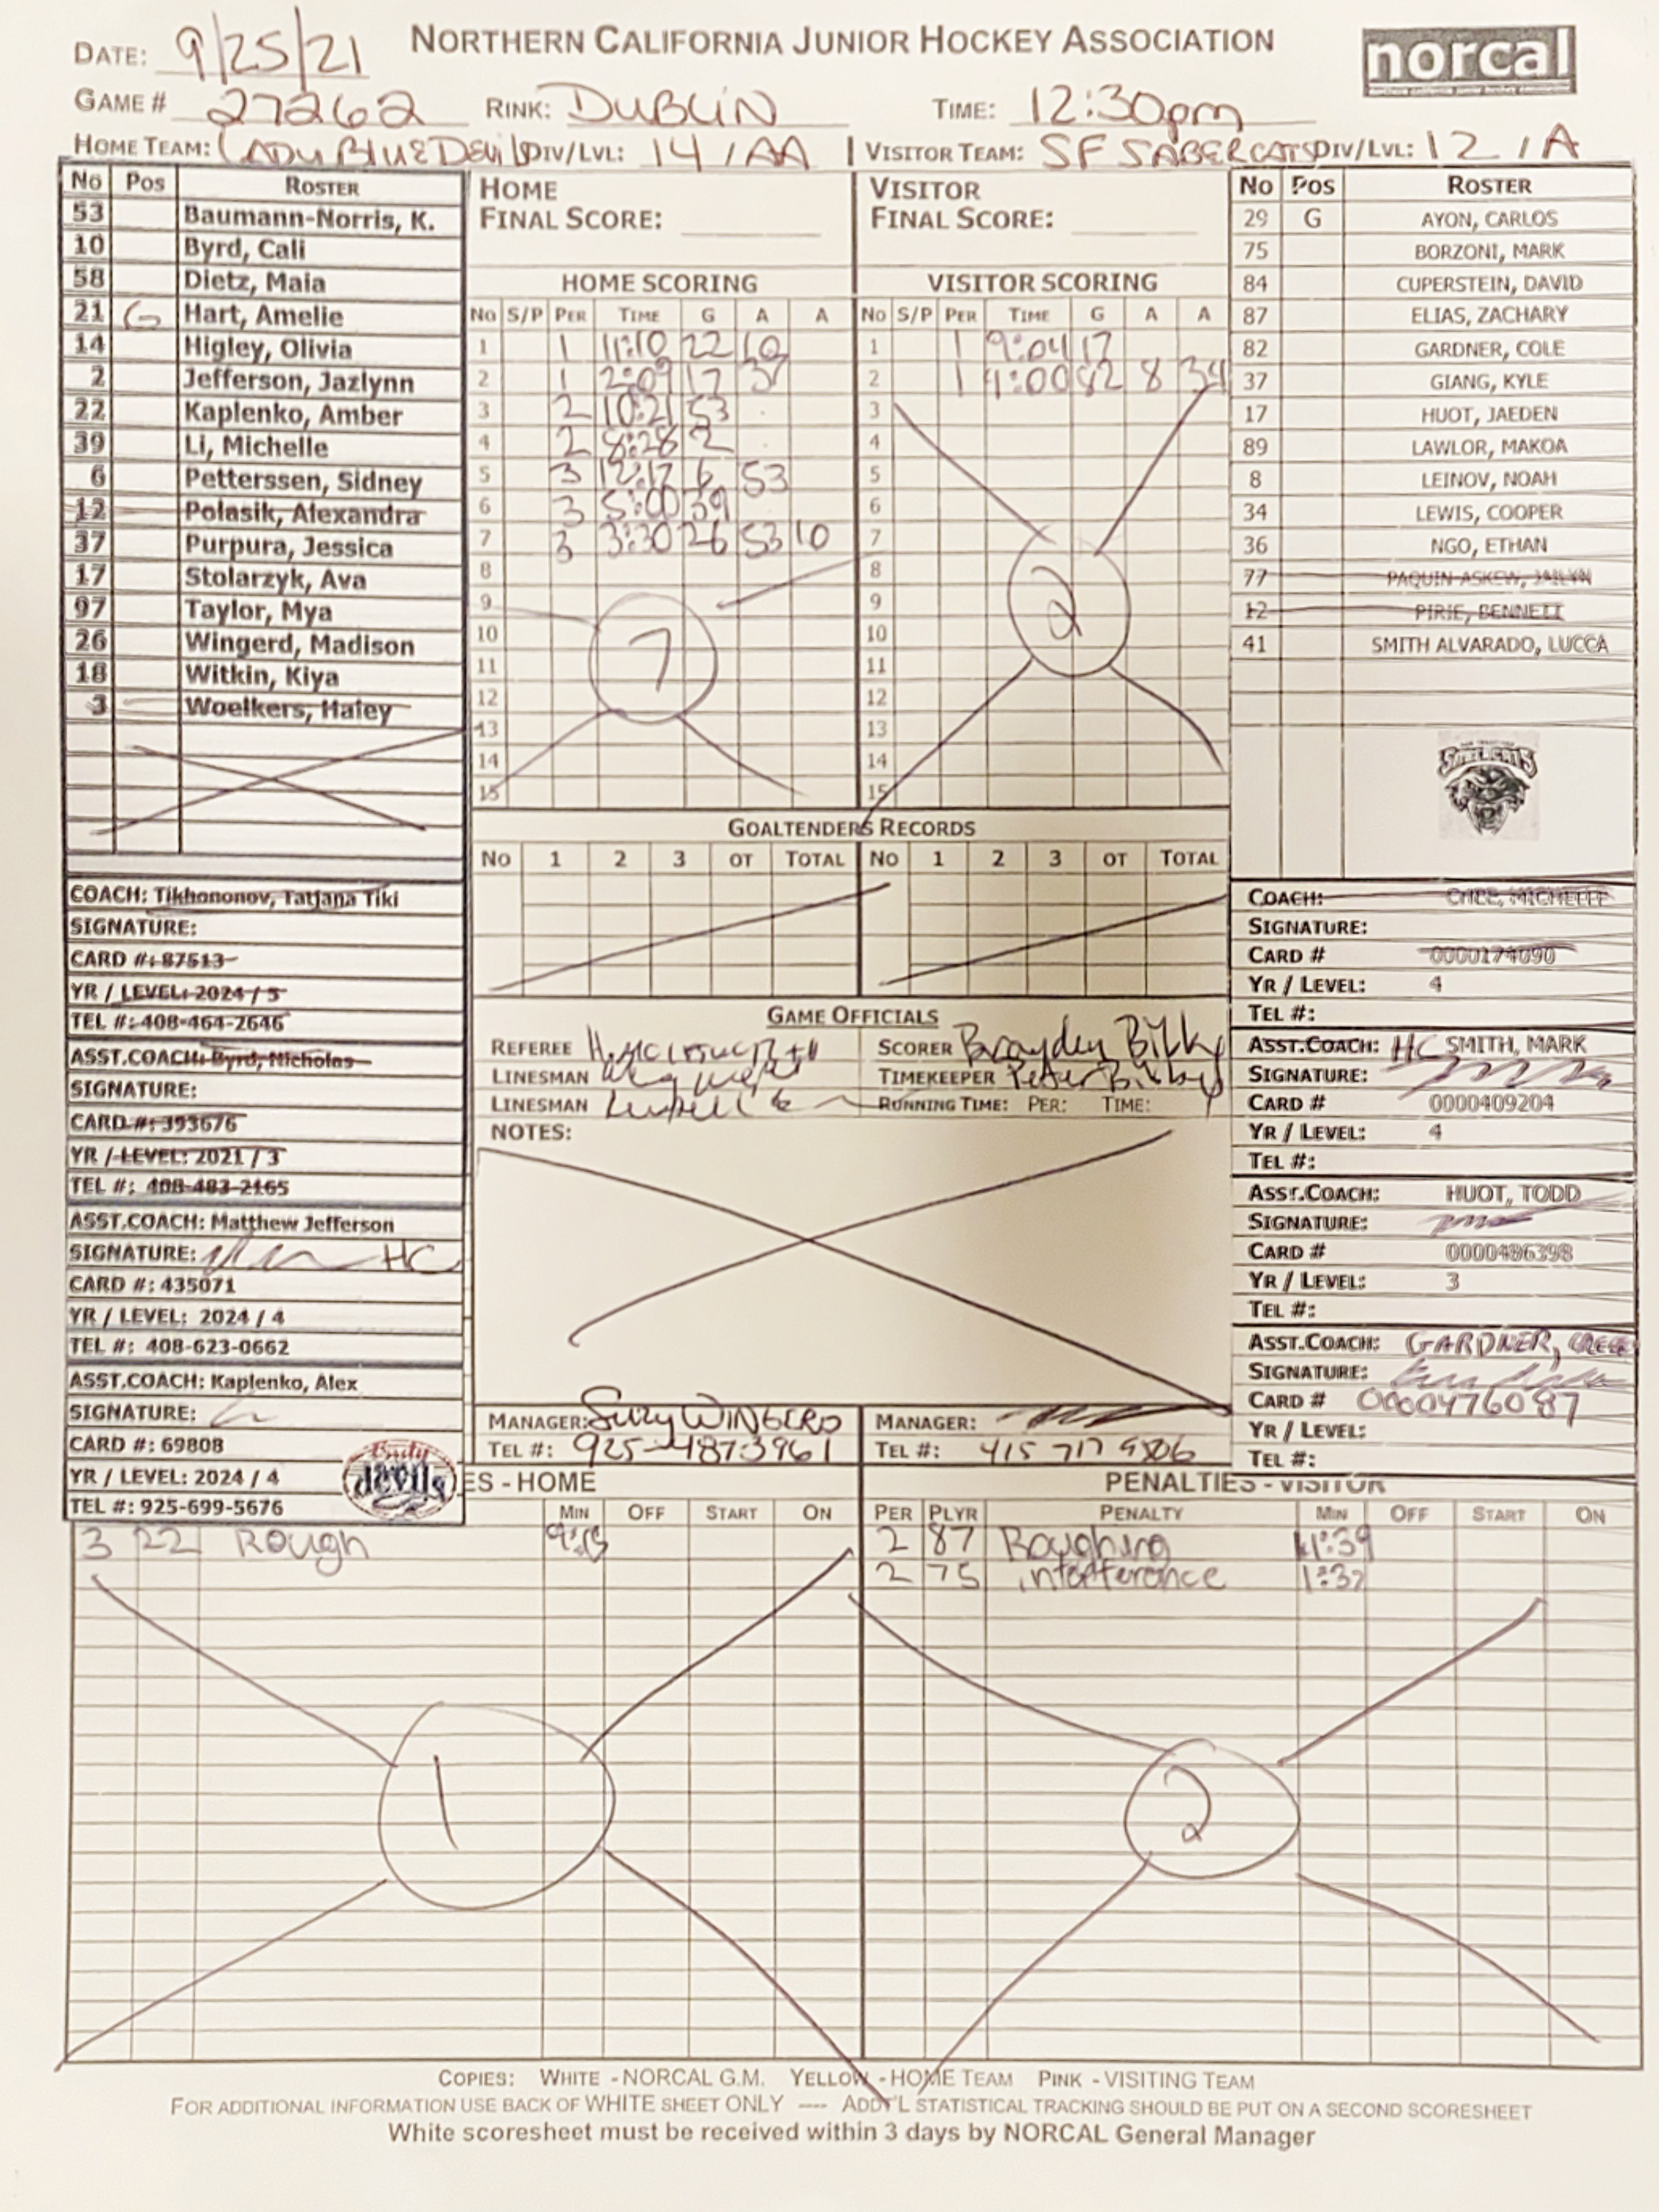 DATE: 9/25/21 NORTHERN CALIFORNIA JUNIOR HOCKEY ASSOCIATION norcal
GAME # 27262 RINK: DUBLIN TIME: 12:30pm
HOME TEAM: LADY BLUE DEVILS DIV/LVL: 14 / AA VISITOR TEAM: SF SABERCATS DIV/LVL: 12 / A
No Pos ROSTER
53 Baumann-Norris, K.
10 Byrd, Cali
58 Dietz, Maia
21 G Hart, Amelie
14 Higley, Olivia
2 Jefferson, Jazlynn
22 Kaplenko, Amber
39 Li, Michelle
6 Petterssen, Sidney
12 Polasik, Alexandra
37 Purpura, Jessica
17 Stolarzyk, Ava
97 Taylor, Mya
26 Wingerd, Madison
18 Witkin, Kiya
3 Woelkers, Haley
COACH: Tikhononov, Tatjana Tiki
SIGNATURE:
CARD #: 87513
YR / LEVEL: 2024 / 5
TEL #: 408-464-2646
ASST.COACH: Byrd, Nicholas
SIGNATURE:
CARD #: 393676
YR / LEVEL: 2021 / 3
TEL #: 408-483-2165
ASST.COACH: Matthew Jefferson
SIGNATURE: HC
CARD #: 435071
YR / LEVEL: 2024 / 4
TEL #: 408-623-0662
ASST.COACH: Kaplenko, Alex
SIGNATURE:
CARD #: 69808
YR / LEVEL: 2024 / 4
TEL #: 925-699-5676
devils
HOME
FINAL SCORE:
HOME SCORING
No S/P PER TIME G A A
1 1 11:10 22 10
2 1 2:09 17 37
3 2 10:21 53
4 2 8:28 2
5 3 12:17 6 53
6 3 5:00 39
7 3 3:30 26 53 10
8
9
10
11
12
13
14
15
7
VISITOR
FINAL SCORE:
VISITOR SCORING
No S/P PER TIME G A A
1 1 9:04 17
2 1 1:00 82 8 34
3
4
5
6
7
8
9
10
11
12
13
14
15
2
GOALTENDERS RECORDS
NO 1 2 3 OT TOTAL NO 1 2 3 OT TOTAL
GAME OFFICIALS
REFEREE SCORER Brayden Bilky
LINESMAN TIMEKEEPER Peter
LINESMAN RUNNING TIME: PER: TIME:
NOTES:
MANAGER: Suzy WINGERD MANAGER:
TEL #: 925-487-3961 TEL #: 415 717 9806
No Pos ROSTER
29 G AYON, CARLOS
75 BORZONI, MARK
84 CUPERSTEIN, DAVID
87 ELIAS, ZACHARY
82 GARDNER, COLE
37 GIANG, KYLE
17 HUOT, JAEDEN
89 LAWLOR, MAKOA
8 LEINOV, NOAH
34 LEWIS, COOPER
36 NGO, ETHAN
77 PAQUIN-ASKEW, JAILYN
12 PIRIE, BENNETT
41 SMITH ALVARADO, LUCCA
COACH: MICHELLE
SIGNATURE:
CARD # 0000174090
YR / LEVEL: 4
TEL #:
ASST.COACH: HC SMITH, MARK
SIGNATURE:
CARD # 0000409204
YR / LEVEL: 4
TEL #:
ASST.COACH: HUOT, TODD
SIGNATURE:
CARD # 0000486398
YR / LEVEL: 3
TEL #:
ASST.COACH: GARDNER,
SIGNATURE:
CARD # 0000476087
YR / LEVEL:
TEL #:
ES - HOME
MIN OFF START ON
3 22 Rough 9:15
1
PENALTIES - VISITOR
PER PLYR PENALTY MIN OFF START ON
2 87 Roughing 11:39
2 75 interference 1:37
2
COPIES: WHITE - NORCAL G.M. YELLOW - HOME TEAM PINK - VISITING TEAM
FOR ADDITIONAL INFORMATION USE BACK OF WHITE SHEET ONLY ---- ADDT'L STATISTICAL TRACKING SHOULD BE PUT ON A SECOND SCORESHEET
White scoresheet must be received within 3 days by NORCAL General Manager